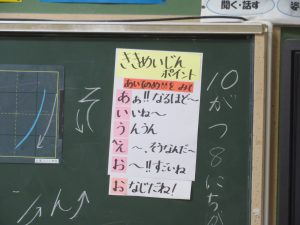 聞く・話す
ききめいじん
ポイント
あいづちの め!! を みて
あぁ!!なるほど〜
いいね〜
うんうん
え〜、そうなんだ〜
お〜!!すごいね
おなじだね!
10がつ8にちか
そ
ん